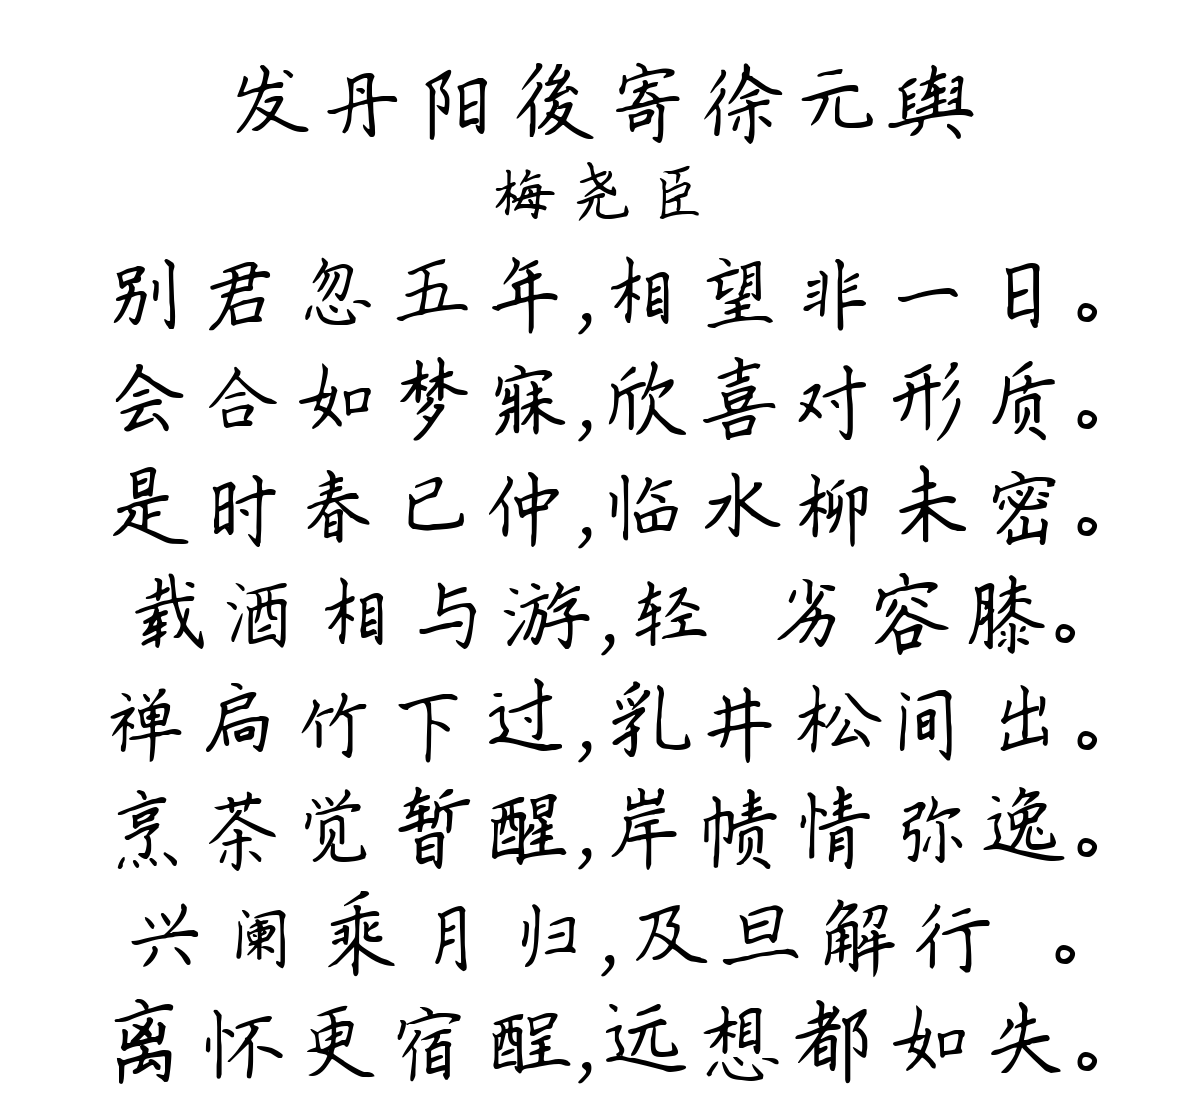 发丹阳後寄徐元舆
梅尧臣
别君忽五年,相望非一日。
会合如梦寐,欣喜对形质。
是时春已仲,临水柳未密。
载酒相与游,轻 劣容膝。
禅扃竹下过,乳井松间出。
烹茶觉暂醒,岸帻情弥逸。
兴阑乘月归,及旦解行 。
离怀更宿酲,远想都如失。